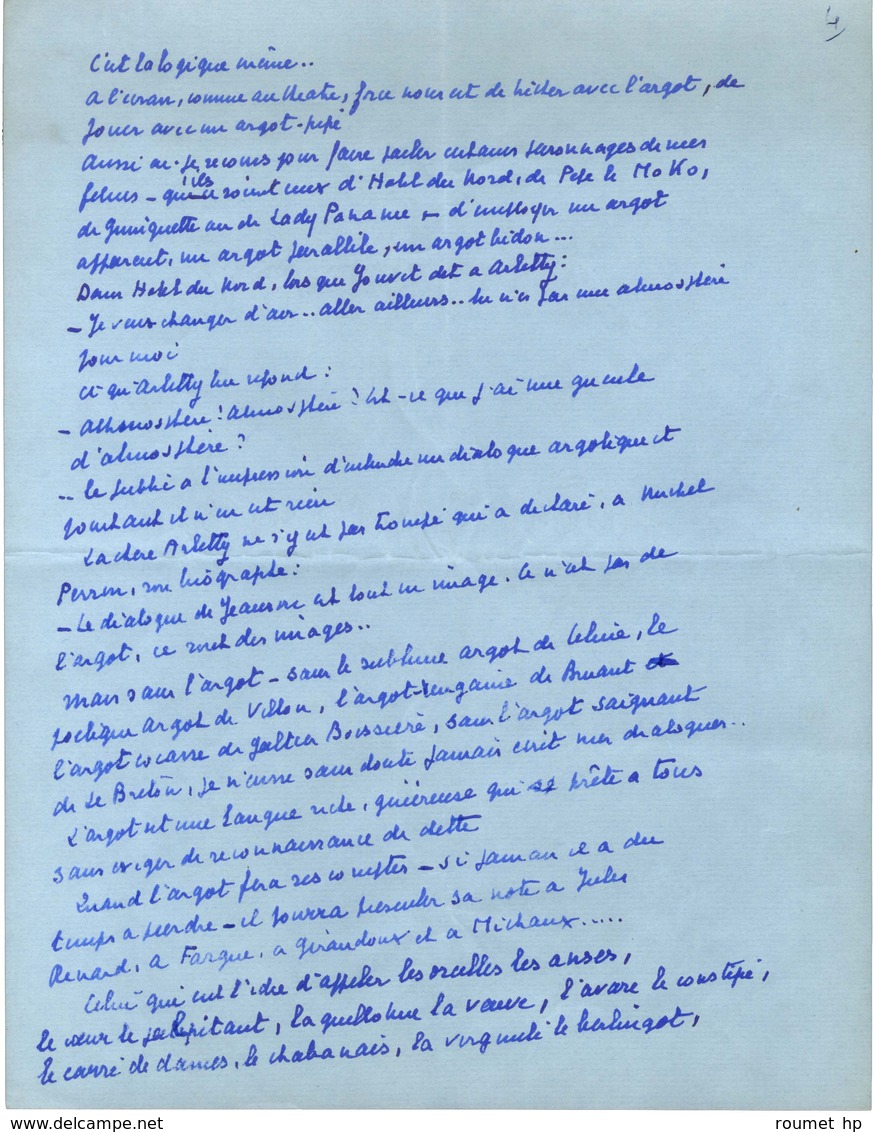 4
C'est la logique même..
A l'écran, comme au theatre, force nous est de tricher avec l'argot, de
jouer avec un argot-pipé
Aussi ai-je recours pour faire parler certains personnages de mes
films - qu'ils soient ceux d'Hotel du Nord, de Pepe le Moko,
de Guinguette ou de Lady Paname - d'employer un argot
apparent, un argot parallèle, un argot bidon...
Dans Hotel du Nord, lorsque Jouvet dit a Arletty:
- Je veux changer d'air.. aller ailleurs.. tu n'es pas une atmosphère
pour moi
et qu'Arletty lui repond :
- Athmosphère! Atmosphère! Est-ce que j'ai une gueule
d'atmosphère ?
.. le public a l'impression d'entendre un dialogue argotique et
pourtant il n'en est rien
La chère Arletty ne s'y est pas trompé qui a declaré, a Michel
Perrin, son biographe:
- Le dialogue de Jeanson est tout en image. Ce n'est pas de
l'argot, ce sont des images..
Mais sans l'argot - sans le sublime argot de Celine, le
poetique argot de Villon, l'argot-rengaine de Bruant
l'argot cocasse de Galtier Boissière, sans l'argot saignant
de Le Breton, je n'eusse sans doute jamais ecrit mes dialogues..
L'argot est une langue riche, genéreuse qui prête a tous
sans exiger de reconnaissance de dette
Quand l'argot fera ses comptes - si jamais il a du
temps a perdre - il pourra presenter sa note a Jules
Renard, a Fargue, a Giraudoux et a Michaux.....
Celui qui eut l'idee d'appeler les oreilles les anses,
le cœur le palpitant, la guillotine la veuve, l'avare le constipé,
le carré de dames, le chabanais, la virginité le berlingot,
www.delcampe.net
roumet hp